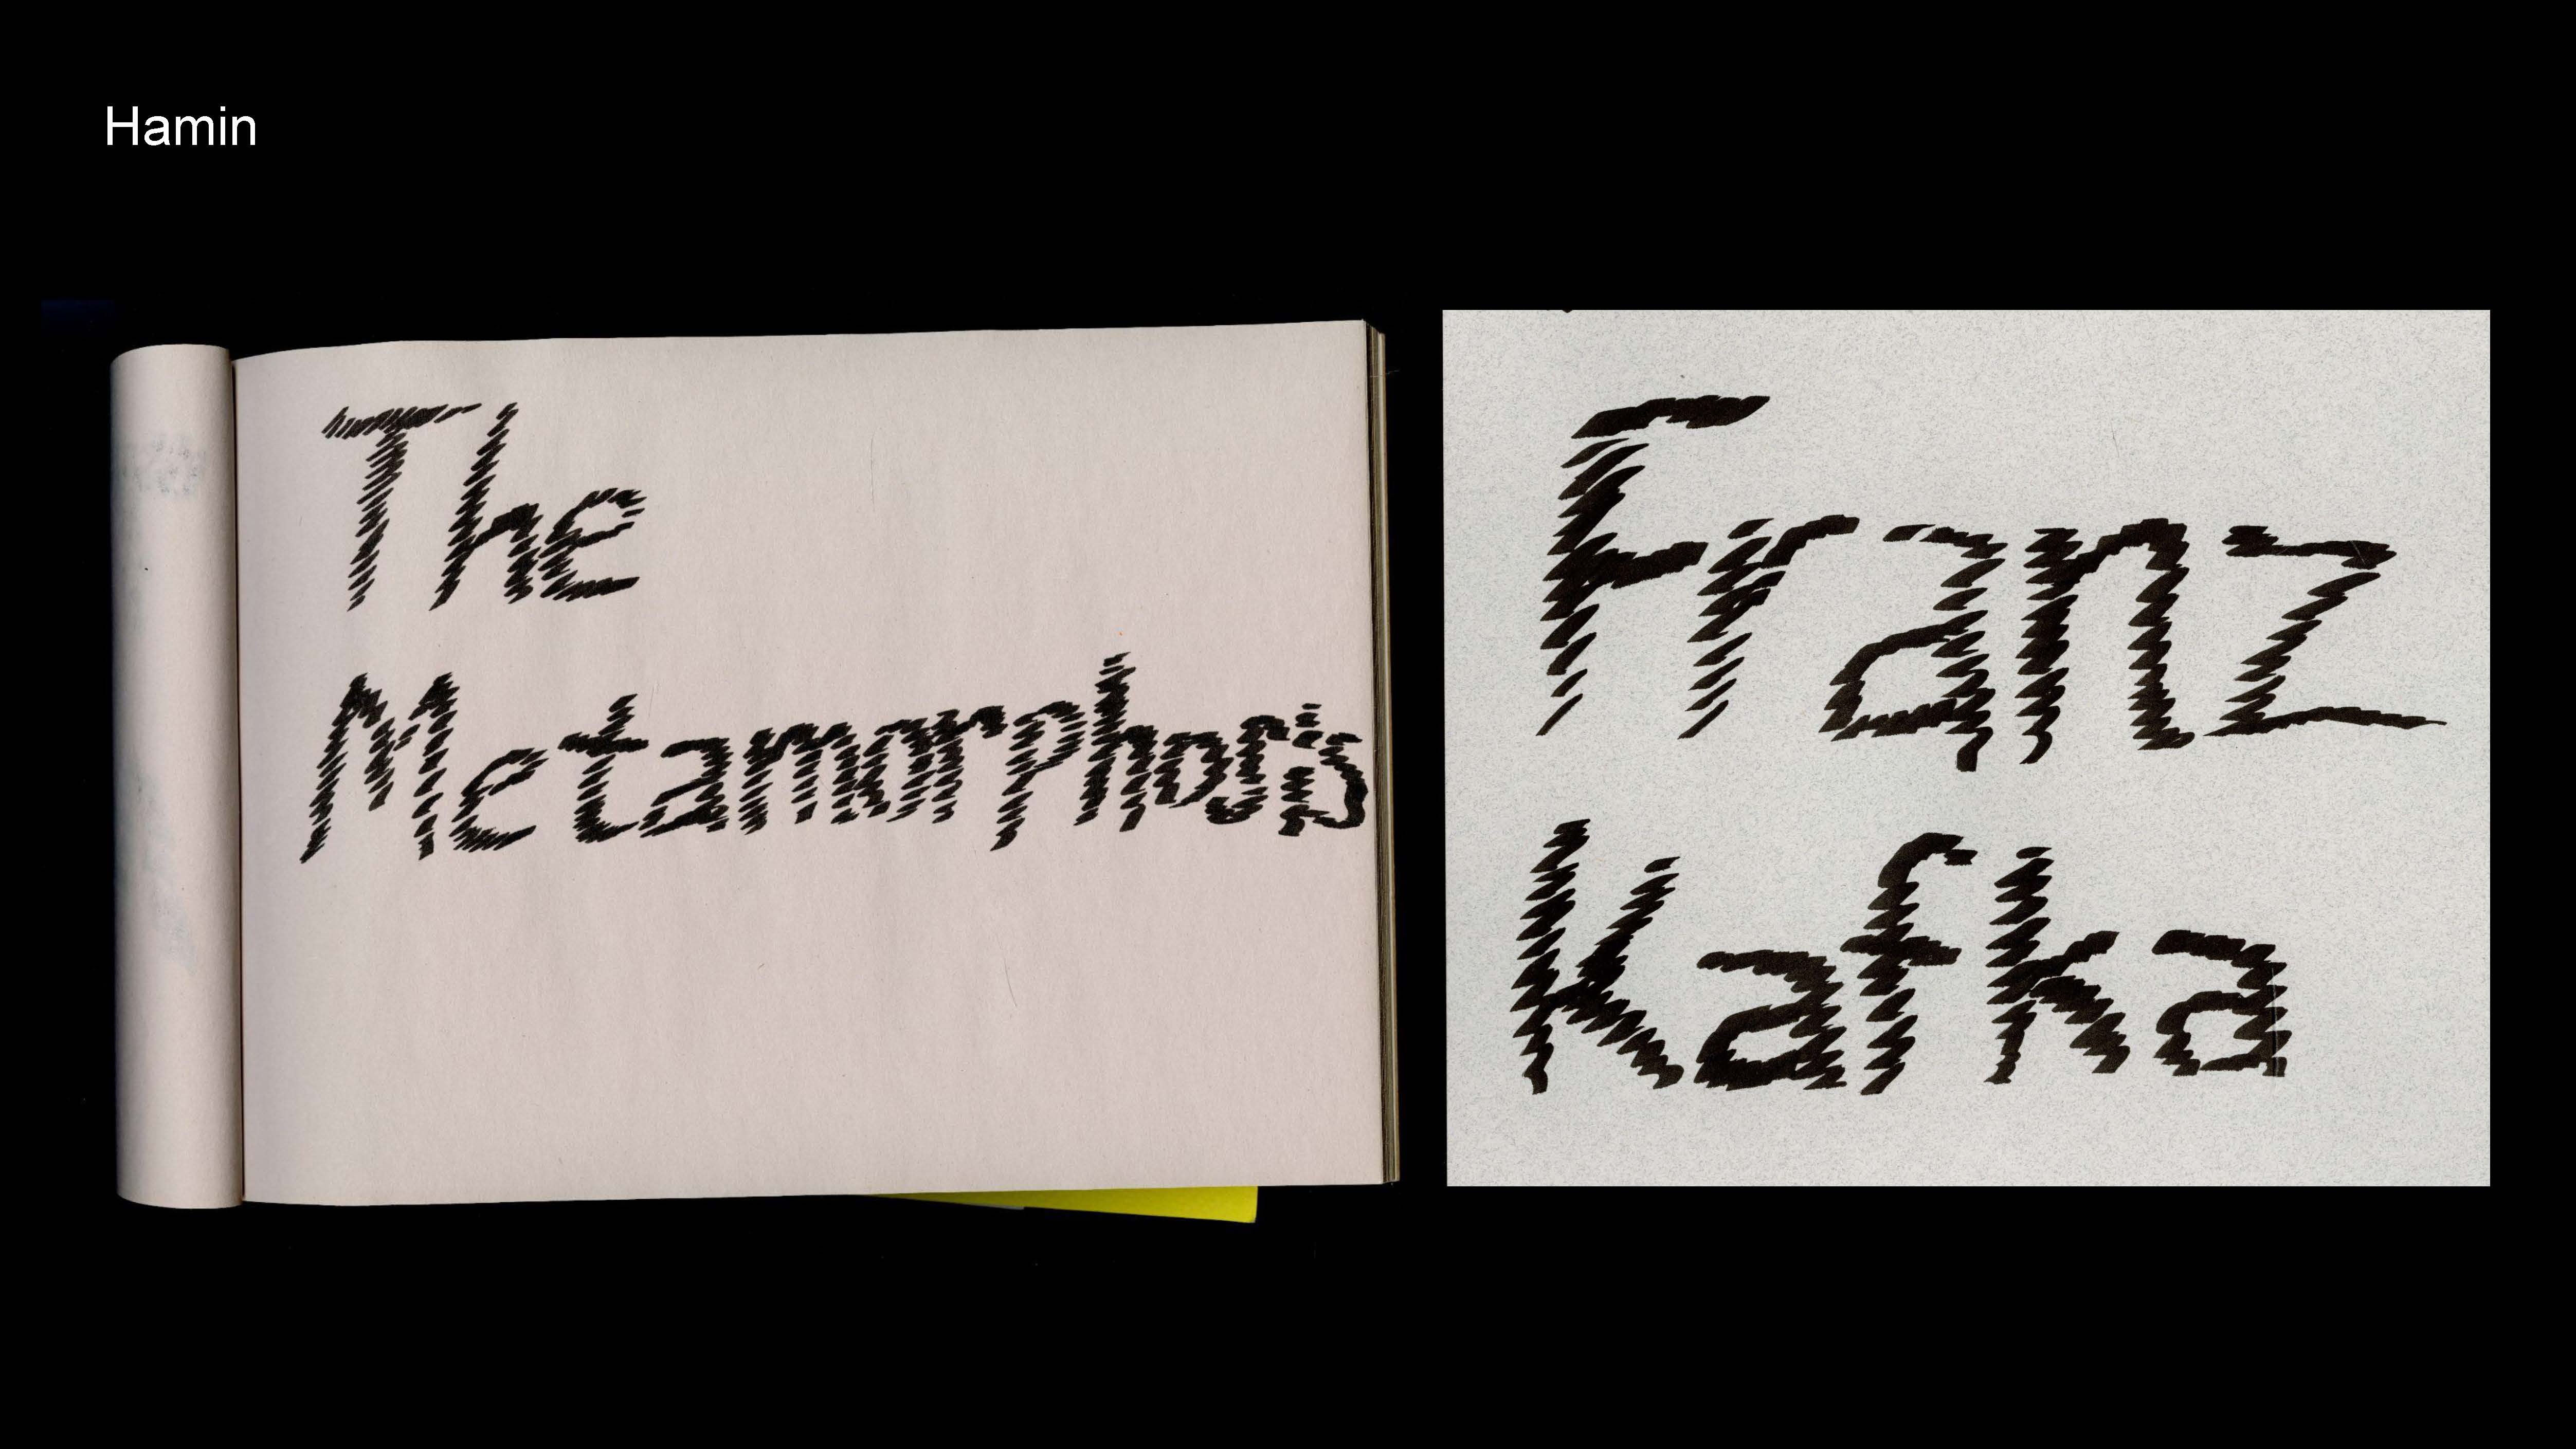 Hamin
The
Metamorphosis
Franz
Kafka